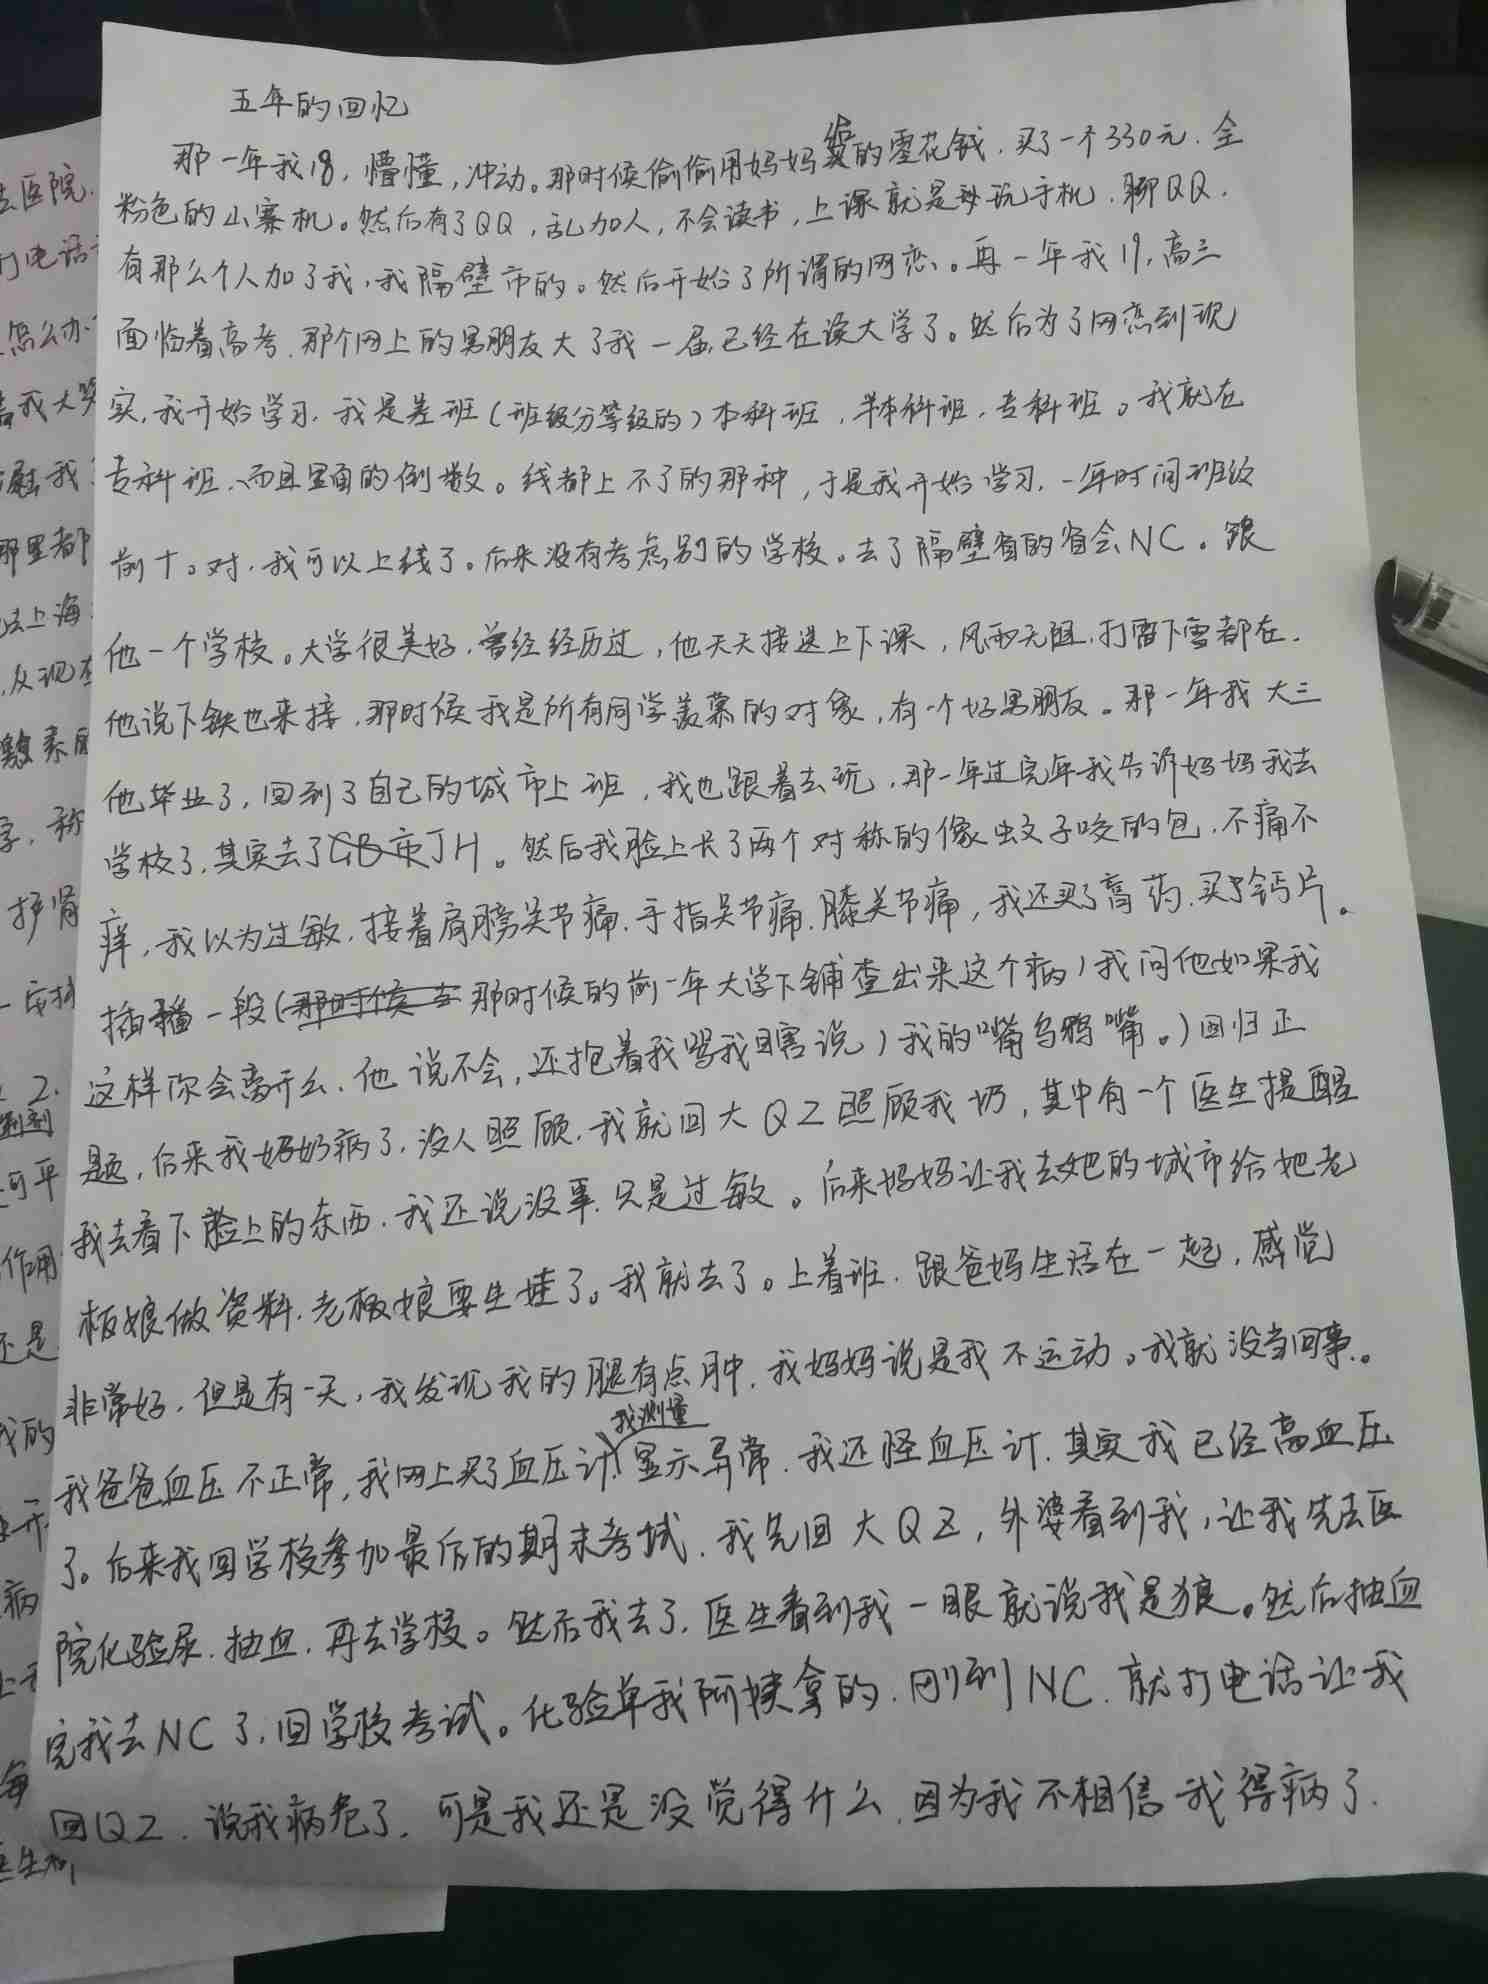 五年的回忆
那一年我18，懵懂，冲动。那时候偷偷用妈妈给的零花钱，买了一个330元，全
粉色的山寨机。然后有了QQ，乱加人，不会读书，上课就是玩手机，聊QQ，
有那么个人加了我，我隔壁市的。然后开始了所谓的网恋。再一年我19，高三
面临着高考，那个网上的男朋友大了我一届，已经在读大学了。然后为了网恋到现
实，我开始学习，我是差班（班级分等级的）本科班，半本科班，专科班。我就在
专科班、而且里面的倒数。线都上不了的那种，于是我开始学习，一年时间班级
前十。对，我可以上线了。后来没有考虑别的学校。去了隔壁省的省会NC。跟
他一个学校。大学很美好，曾经经历过，他天天接送上下课，风雨无阻，打雷下雪都在，
他说下铁也来接，那时候我是所有同学羡慕的对象，有一个好男朋友。那一年我大三
他毕业了，回到了自己的城市上班，我也跟着去玩，那一年过完年我告诉妈妈我去
学校了，其实去了GB市JH。然后我脸上长了两个对称的像蚊子咬的包，不痛不
痒，我以为过敏，接着肩膀关节痛、手指关节痛、膝关节痛，我还买了膏药，买了钙片。
插播一段（那时候去那时候的前一年大学下铺查出来这个病）我问他如果我
这样你会离开么，他说不会，还抱着我骂我瞎说）我的嘴乌鸦嘴。）回归正
题，后来我奶奶病了，没人照顾，我就回大QZ照顾我奶，其中有一个医生提醒
我去看下脸上的东西，我还说没事，只是过敏。后来妈妈让我去她的城市给她老
板娘做资料，老板娘要生娃了。我就去了。上着班，跟爸妈生活在一起，感觉
非常好，但是有一天，我发现我的腿有点肿，我妈妈说是我不运动。我就没当回事。
我测量
我爸爸血压不正常，我网上买了血压计，显示异常，我还怪血压计，其实我已经高血压
了。后来我回学校参加最后的期末考试，我先回大QZ，外婆看到我，让我先去医
院化验尿、抽血，再去学校。然后我去了，医生看到我一眼就说我是狼。然后抽血
完我去NC了，回学校考试。化验单我阿姨拿的，刚到NC，就打电话让我
回QZ，说我病危了，可是我还是没觉得什么，因为我不相信我得病了.
去医院，
打电话
怎么办
我大
我
那里都
去上海
激素
护肾
2.
可平
作用
还是
我的
病
每
医生